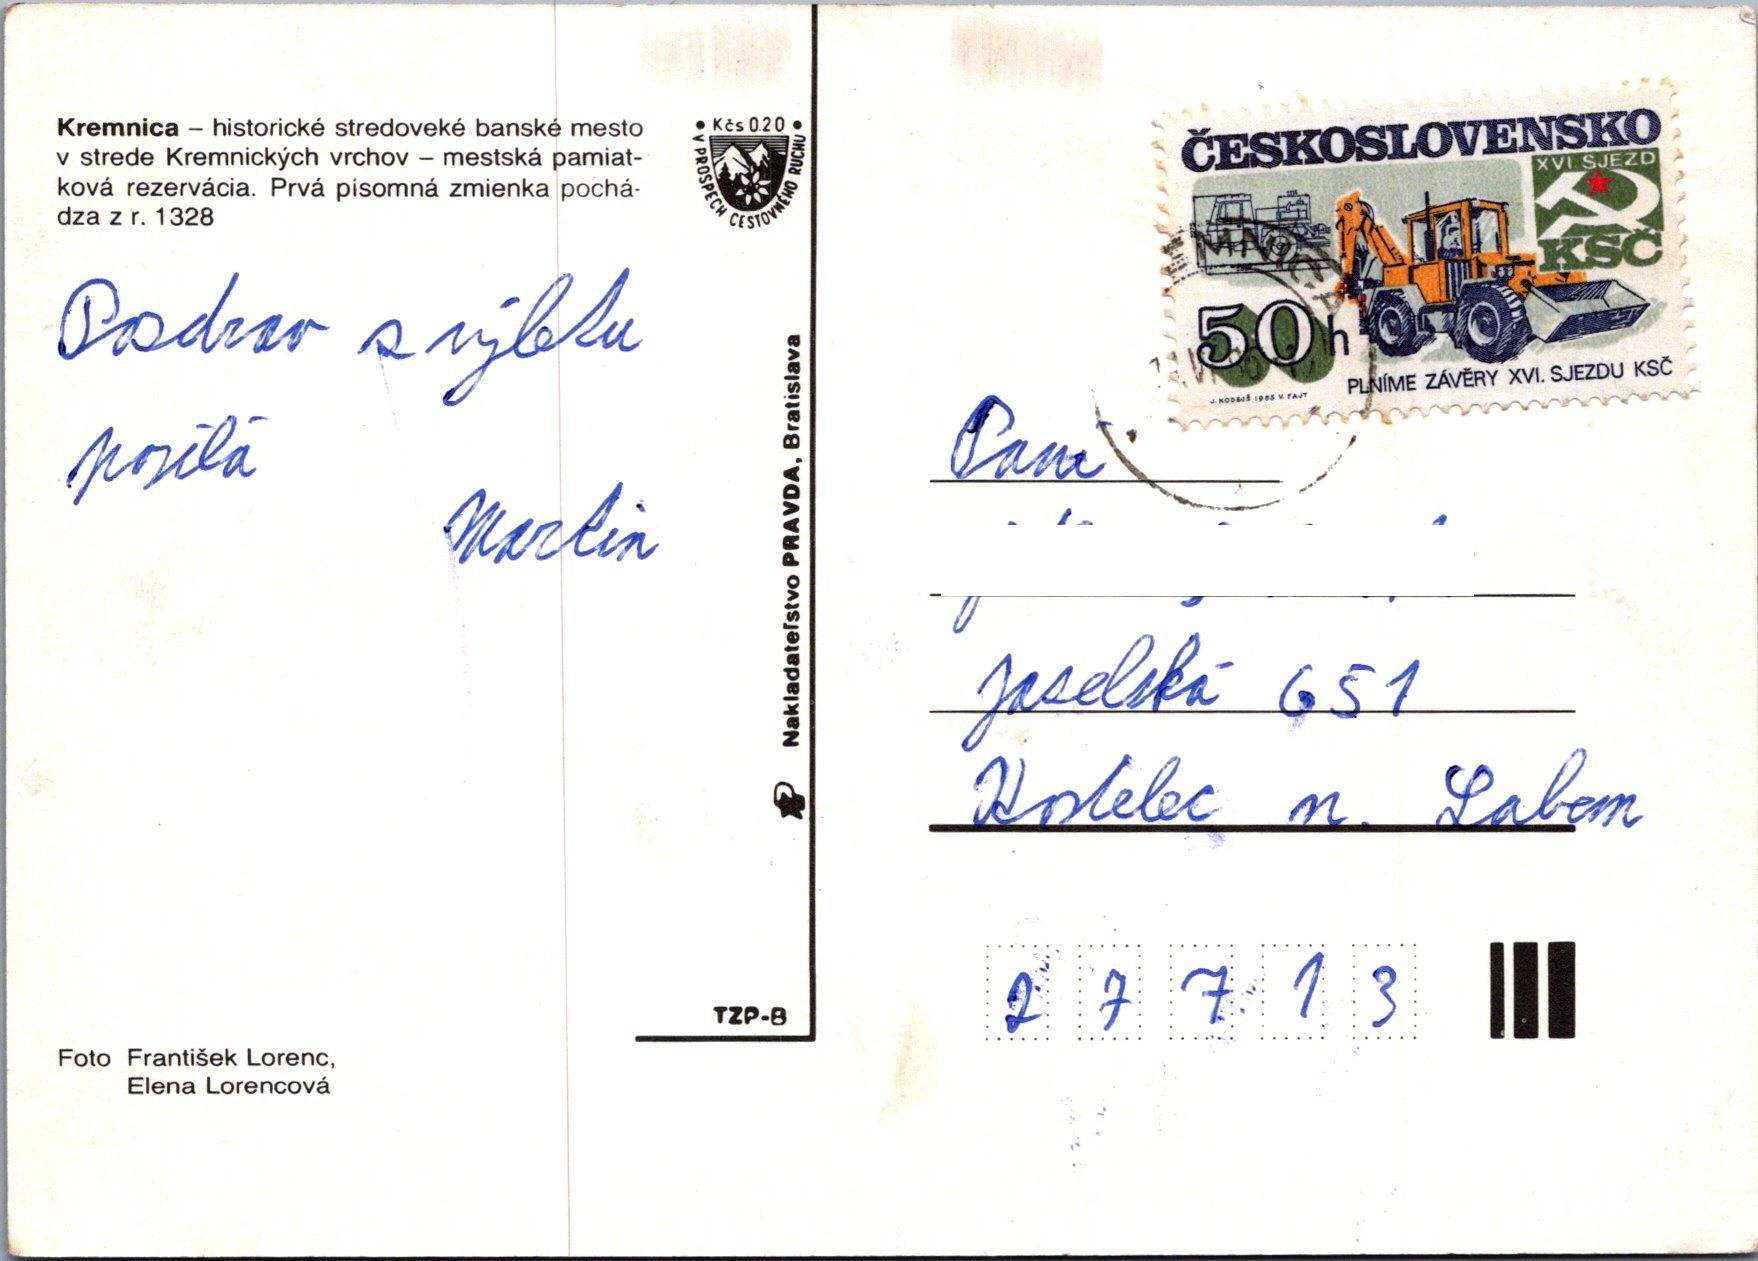 Kremnica – historické stredoveké banské mesto
v strede Kremnických vrchov – mestská pamiat-
ková rezervácia. Prvá písomná zmienka pochá-
dza z r. 1328
• Kčs 0.20 •
V PROSPECH CESTOVNÉHO RUCHU
Pozdrav s výletu
posílá
Martin
Nakladateľstvo PRAVDA, Bratislava
TZP-B
Foto František Lorenc,
Elena Lorencová
ČESKOSLOVENSKO
XVI. SJEZD
KSČ
50 h
PLNÍME ZÁVĚRY XVI. SJEZDU KSČ
1985 V. FAJT
Paní
Jaselská 651
Kostelec n. Labem
27713